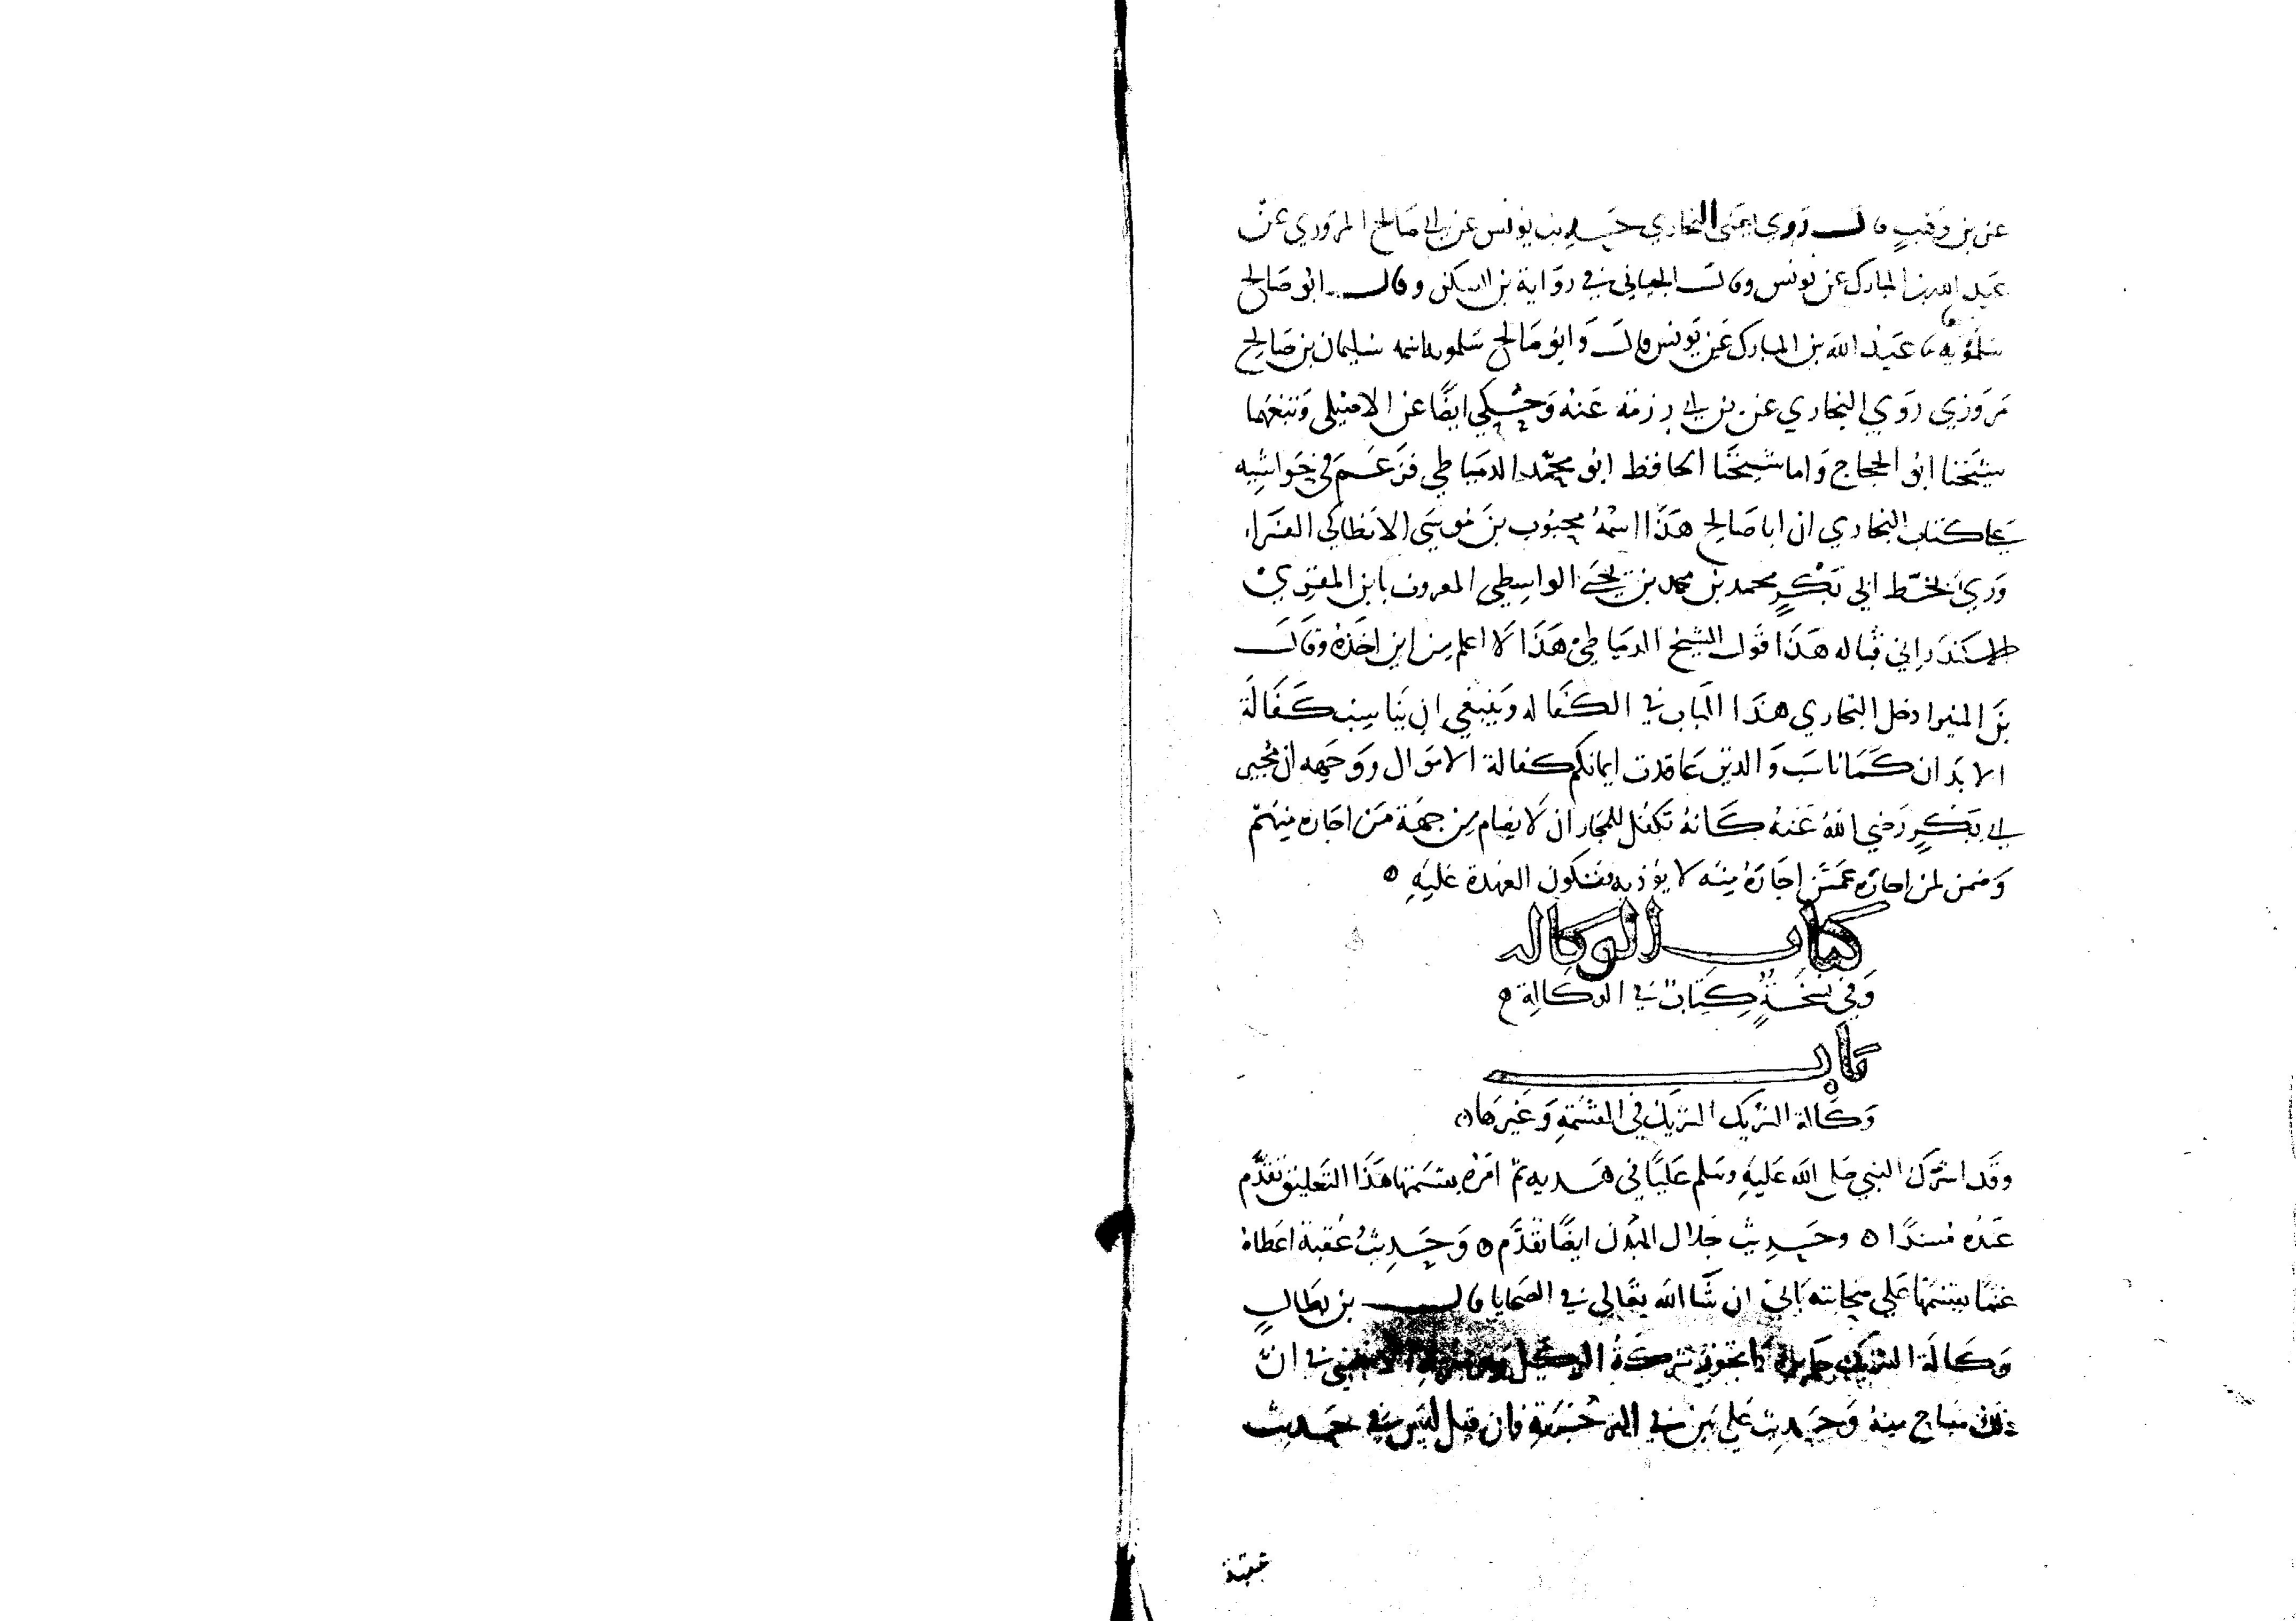 عن بن وهب قال روى يعني البخاري حديث يونس عن ابي صالح المروزي عن
عبد الله بن المبارك عن يونس وقال الجياني في رواية بن السكن وقال ابو صالح
سلمويه نا عبد الله بن المبارك عن يونس قال وابو صالح سلمويه اسمه سليمان بن صالح
مروزي روى البخاري عن بن ابي رزمة عنه وحكي ايضا عن الاصيلي وتبعهما
شيخنا ابو الحجاج واما شيخنا الحافظ ابو محمد الدمياطي فزعم في حواشيه
على كتاب البخاري ان ابا صالح هذا اسمه محبوب بن موسى الانطاكي الفراء
وري بخط ابي بكر محمد بن محمد بن يحيى الواسطي المعروف بابن المقري
الاسكندراني قباله هذا قول الشيخ الدمياطي هذا لا اعلم من اين اخذه وقال
بن المنير ادخل البخاري هذا الباب في الكفاله وينبغي ان يناسب كفالة
الابدان كما ناسب والذين عاقدت ايمانكم كفالة الاموال ووجهه ان مجير
ابي بكر رضي الله عنه كانه تكفل للمجار ان لا يضام من جهة من اجاره منهم
وضمن لمن اجاره عمن اجاره منه لا يؤذيه فتكون العهدة عليه ه
كتاب الوكاله
وفي نسخة كتاب في الوكالة ه
باب
وكالة الشريك الشريك في القسمة وغيرها ه
وقد اشرك النبي صلى الله عليه وسلم عليا في هديه ثم امره بقسمتها هذا التعليق تقدم
عنده مسندا ه وحديث جلال البدن ايضا تقدم ه وحديث عقبة اعطاه
غنما يقسمها على صحابته ياتي ان شا الله تعالى في الضحايا قال بن بطال
وكالة الشريك جايزة كما تجوز شركة الوكيل في ان
ذلك مباح منه وحديث علي بين في قسمة فان قيل ليس في حديث
عقبة